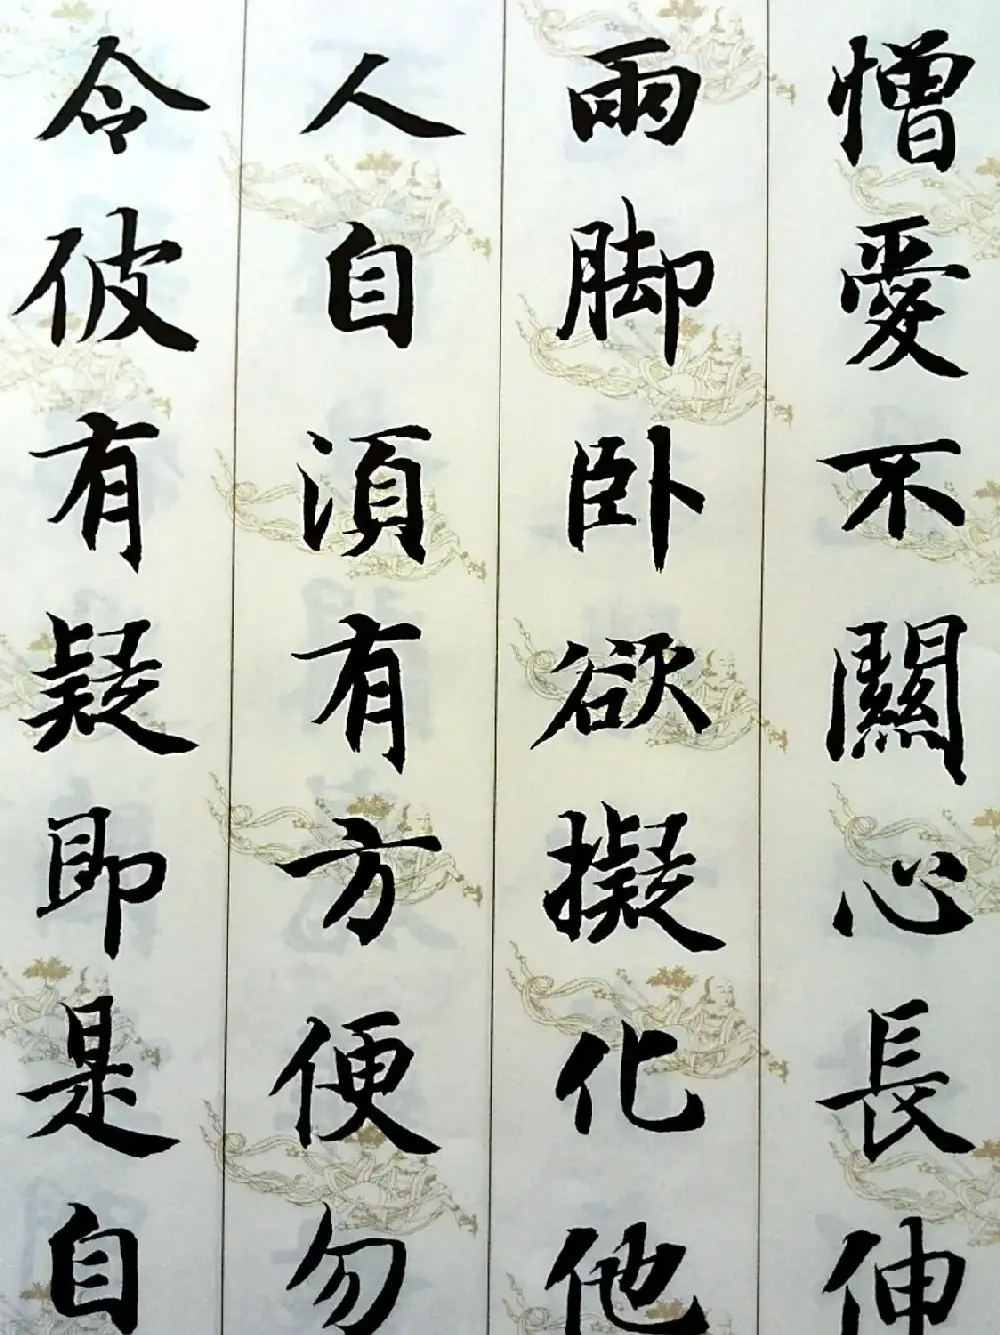 憎愛不關心長伸
兩脚卧欲擬化他
人自湏有方便勿
令彼有疑即是自